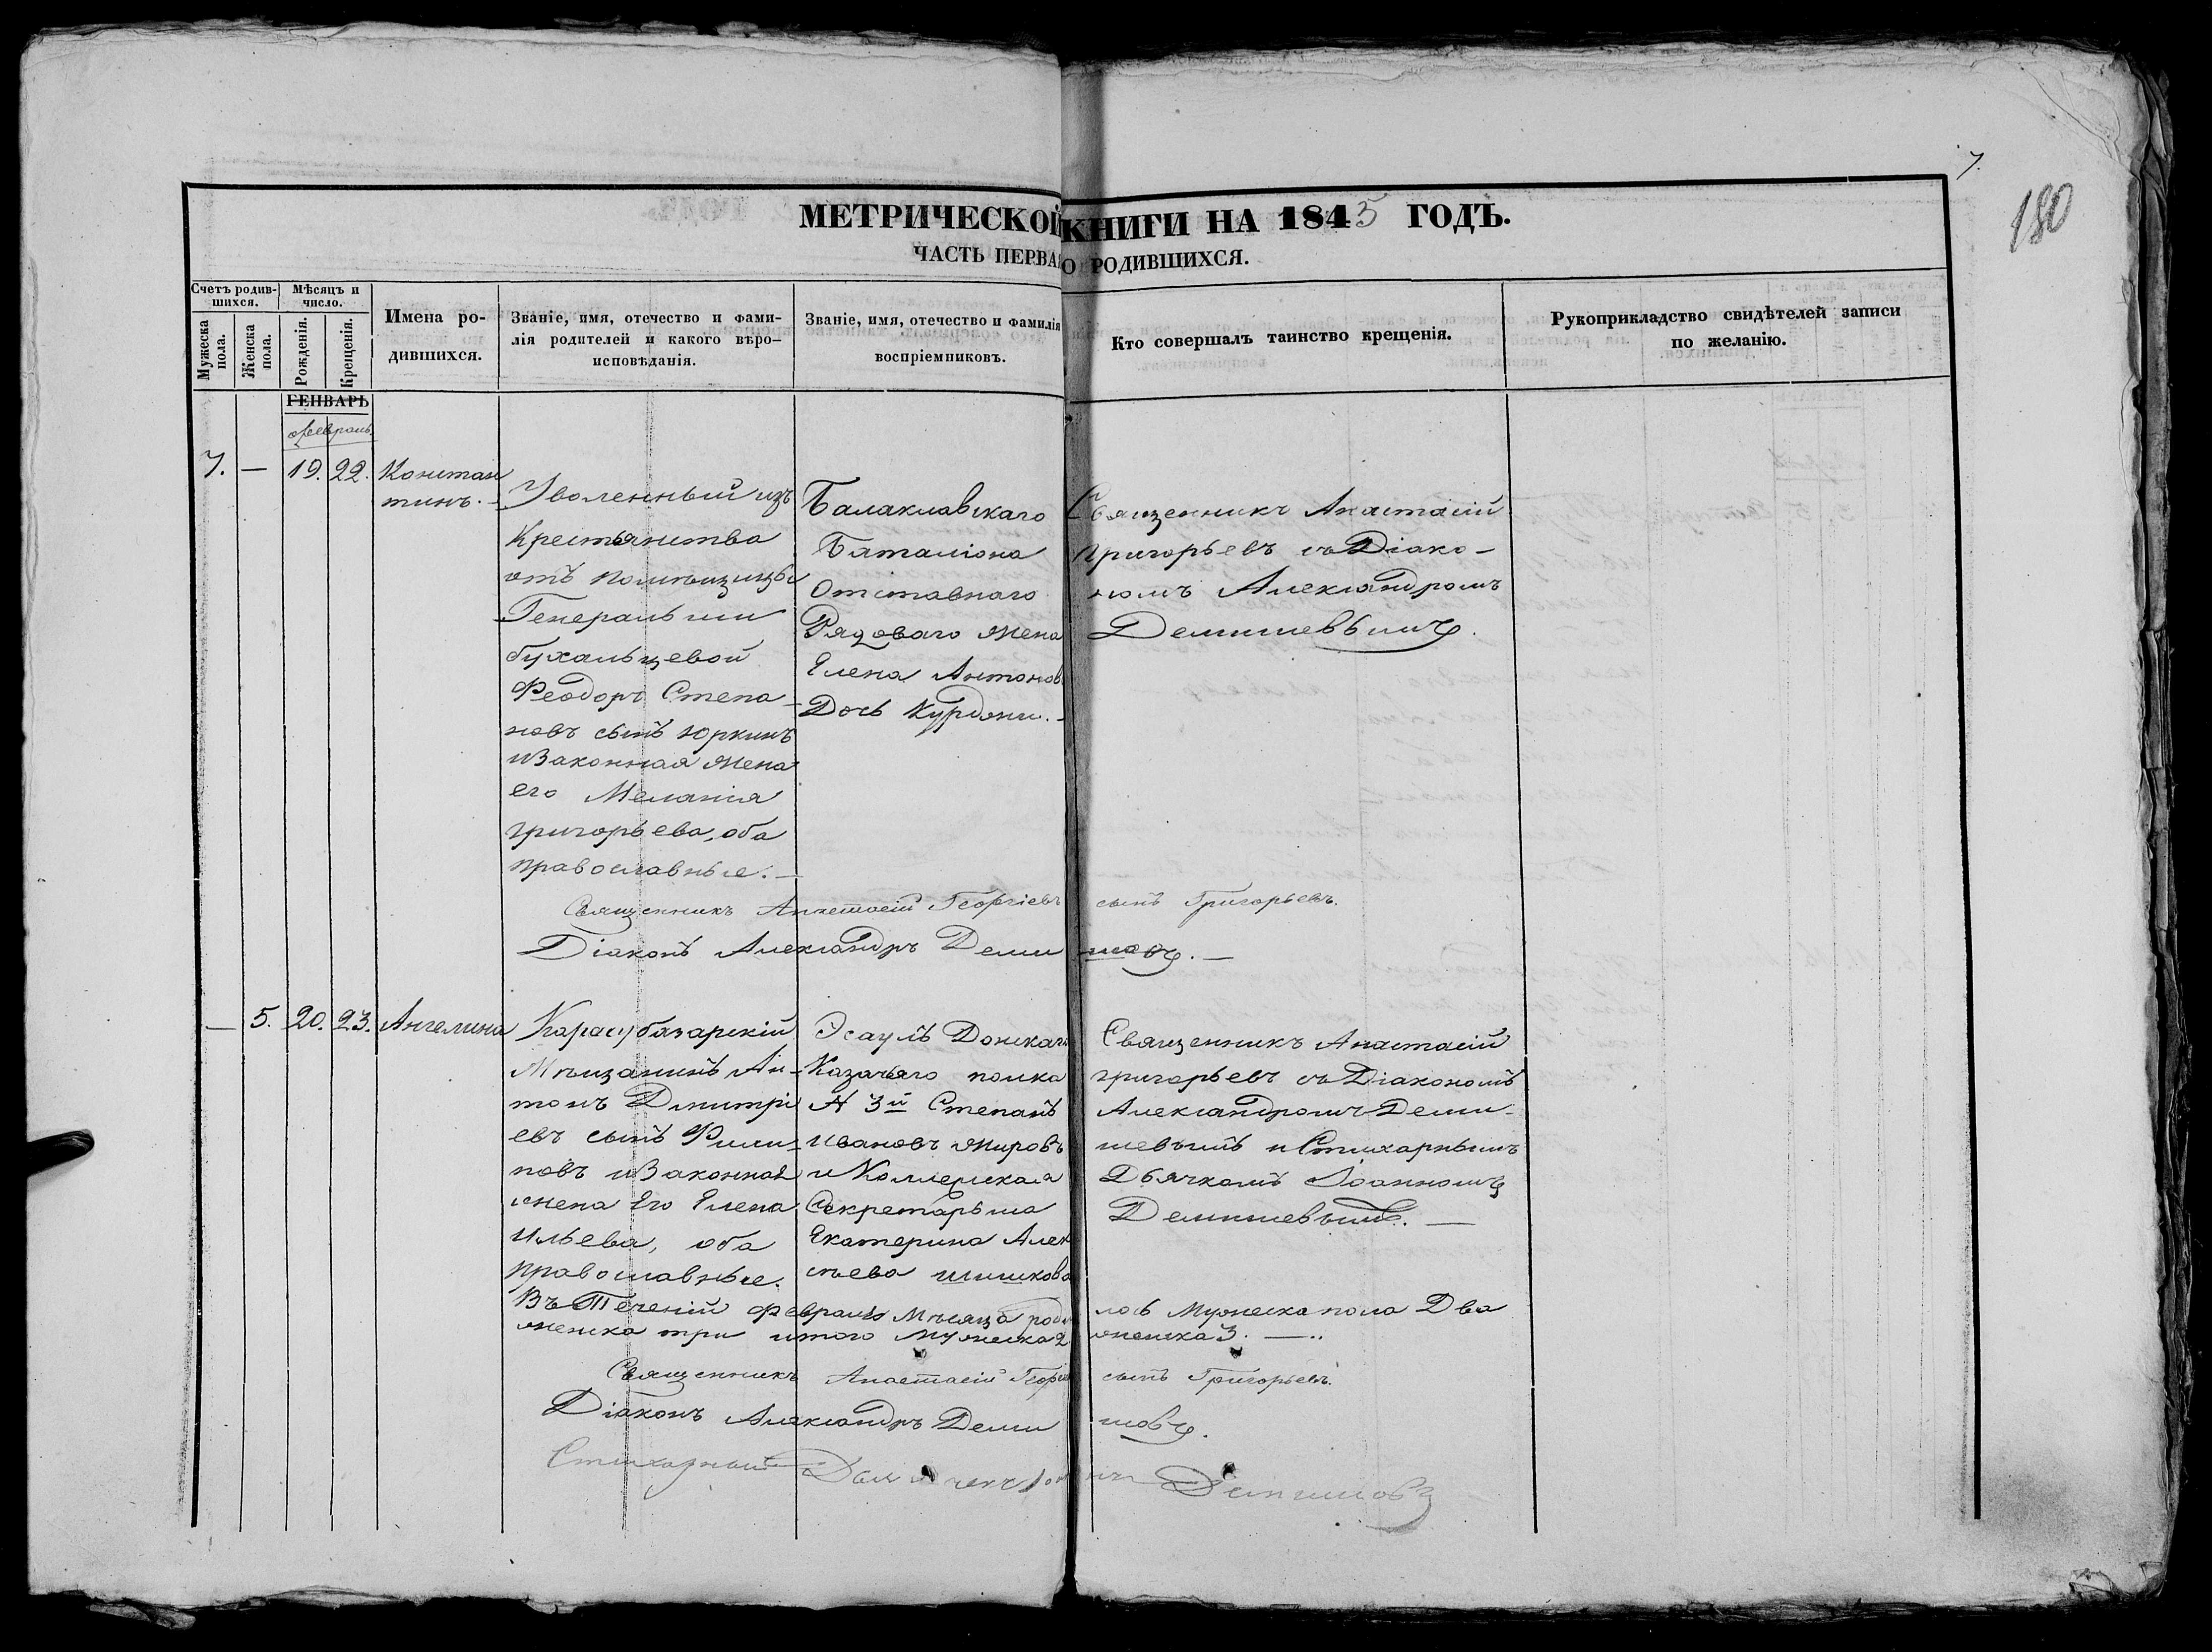 7.
180
МЕТРИЧЕСКОЙ КНИГИ НА 1845 ГОДЪ.
ЧАСТЬ ПЕРВАЯ О РОДИВШИХСЯ.
Счетъ родившихся.
Мужеска пола.
Женска пола.
Мѣсяцъ и число.
Рожденія.
Крещенія.
Имена родившихся.
Званіе, имя, отечество и фами-
лія родителей и какого вѣро-
исповѣданія.
Званіе, имя, отечество и фамилія
воспріемниковъ.
Кто совершалъ таинство крещенія.
Рукоприкладство свидѣтелей записи
по желанію.
ГЕНВАРЬ
февраль
7. — 19. 22.
Констан
тинъ. —
Уволенный изъ
Крестьянства
отъ помѣщицы
Генеральши
бухальцевой
Феодоръ Степа-
новъ сынъ Юркинъ
и Законная Жена
его Меланія
григорьева, оба
православные. —
Балаклавскаго
Баталіона
Отставнаго
Рядоваго Жена
Елена Антонов
Дочь Курдони. —
Священникъ Анастасій
Григорьевъ съ Діако-
номъ Александромъ
Демишевымъ.
Священникъ Анастасій Георгіевъ сынъ Григорьевъ.
Діаконъ Александръ Демишовъ. —
— 5. 20. 23.
Ангелина
Карасубазарскій
Мѣщанинъ Ан-
тонъ Дмитрі
евъ сынъ Фили-
повъ и Законная
жена Его Елена
Ильева, оба
православные.
Эсаулъ Донскаго
Казачьяго полка
№ 3й Степанъ
Ивановъ Жировъ
и Коллежская
Секретарьша
Екатерина Алек
сѣева шишкова
Священникъ Анастасій
григорьевъ съ Діакономъ
Александромъ Деми-
шевымъ и Стихарнымъ
Дьячкомъ Іоанномъ
Демишевымъ. —
Въ Теченіи Февраля Мѣсяца родилось Мужеска пола Два
женска три итого Мужеска 2 женска 3. —
Священникъ Анастасій Георгіевъ сынъ Григорьевъ.
Діаконъ Александръ Демишовъ.
Стихарный Дьячекъ Іоаннъ Демишовъ